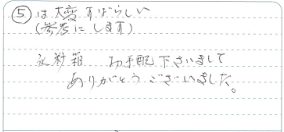 ⑤は大変すばらしい
(参考にします)
お手配下さいまして
ありがとうございました。